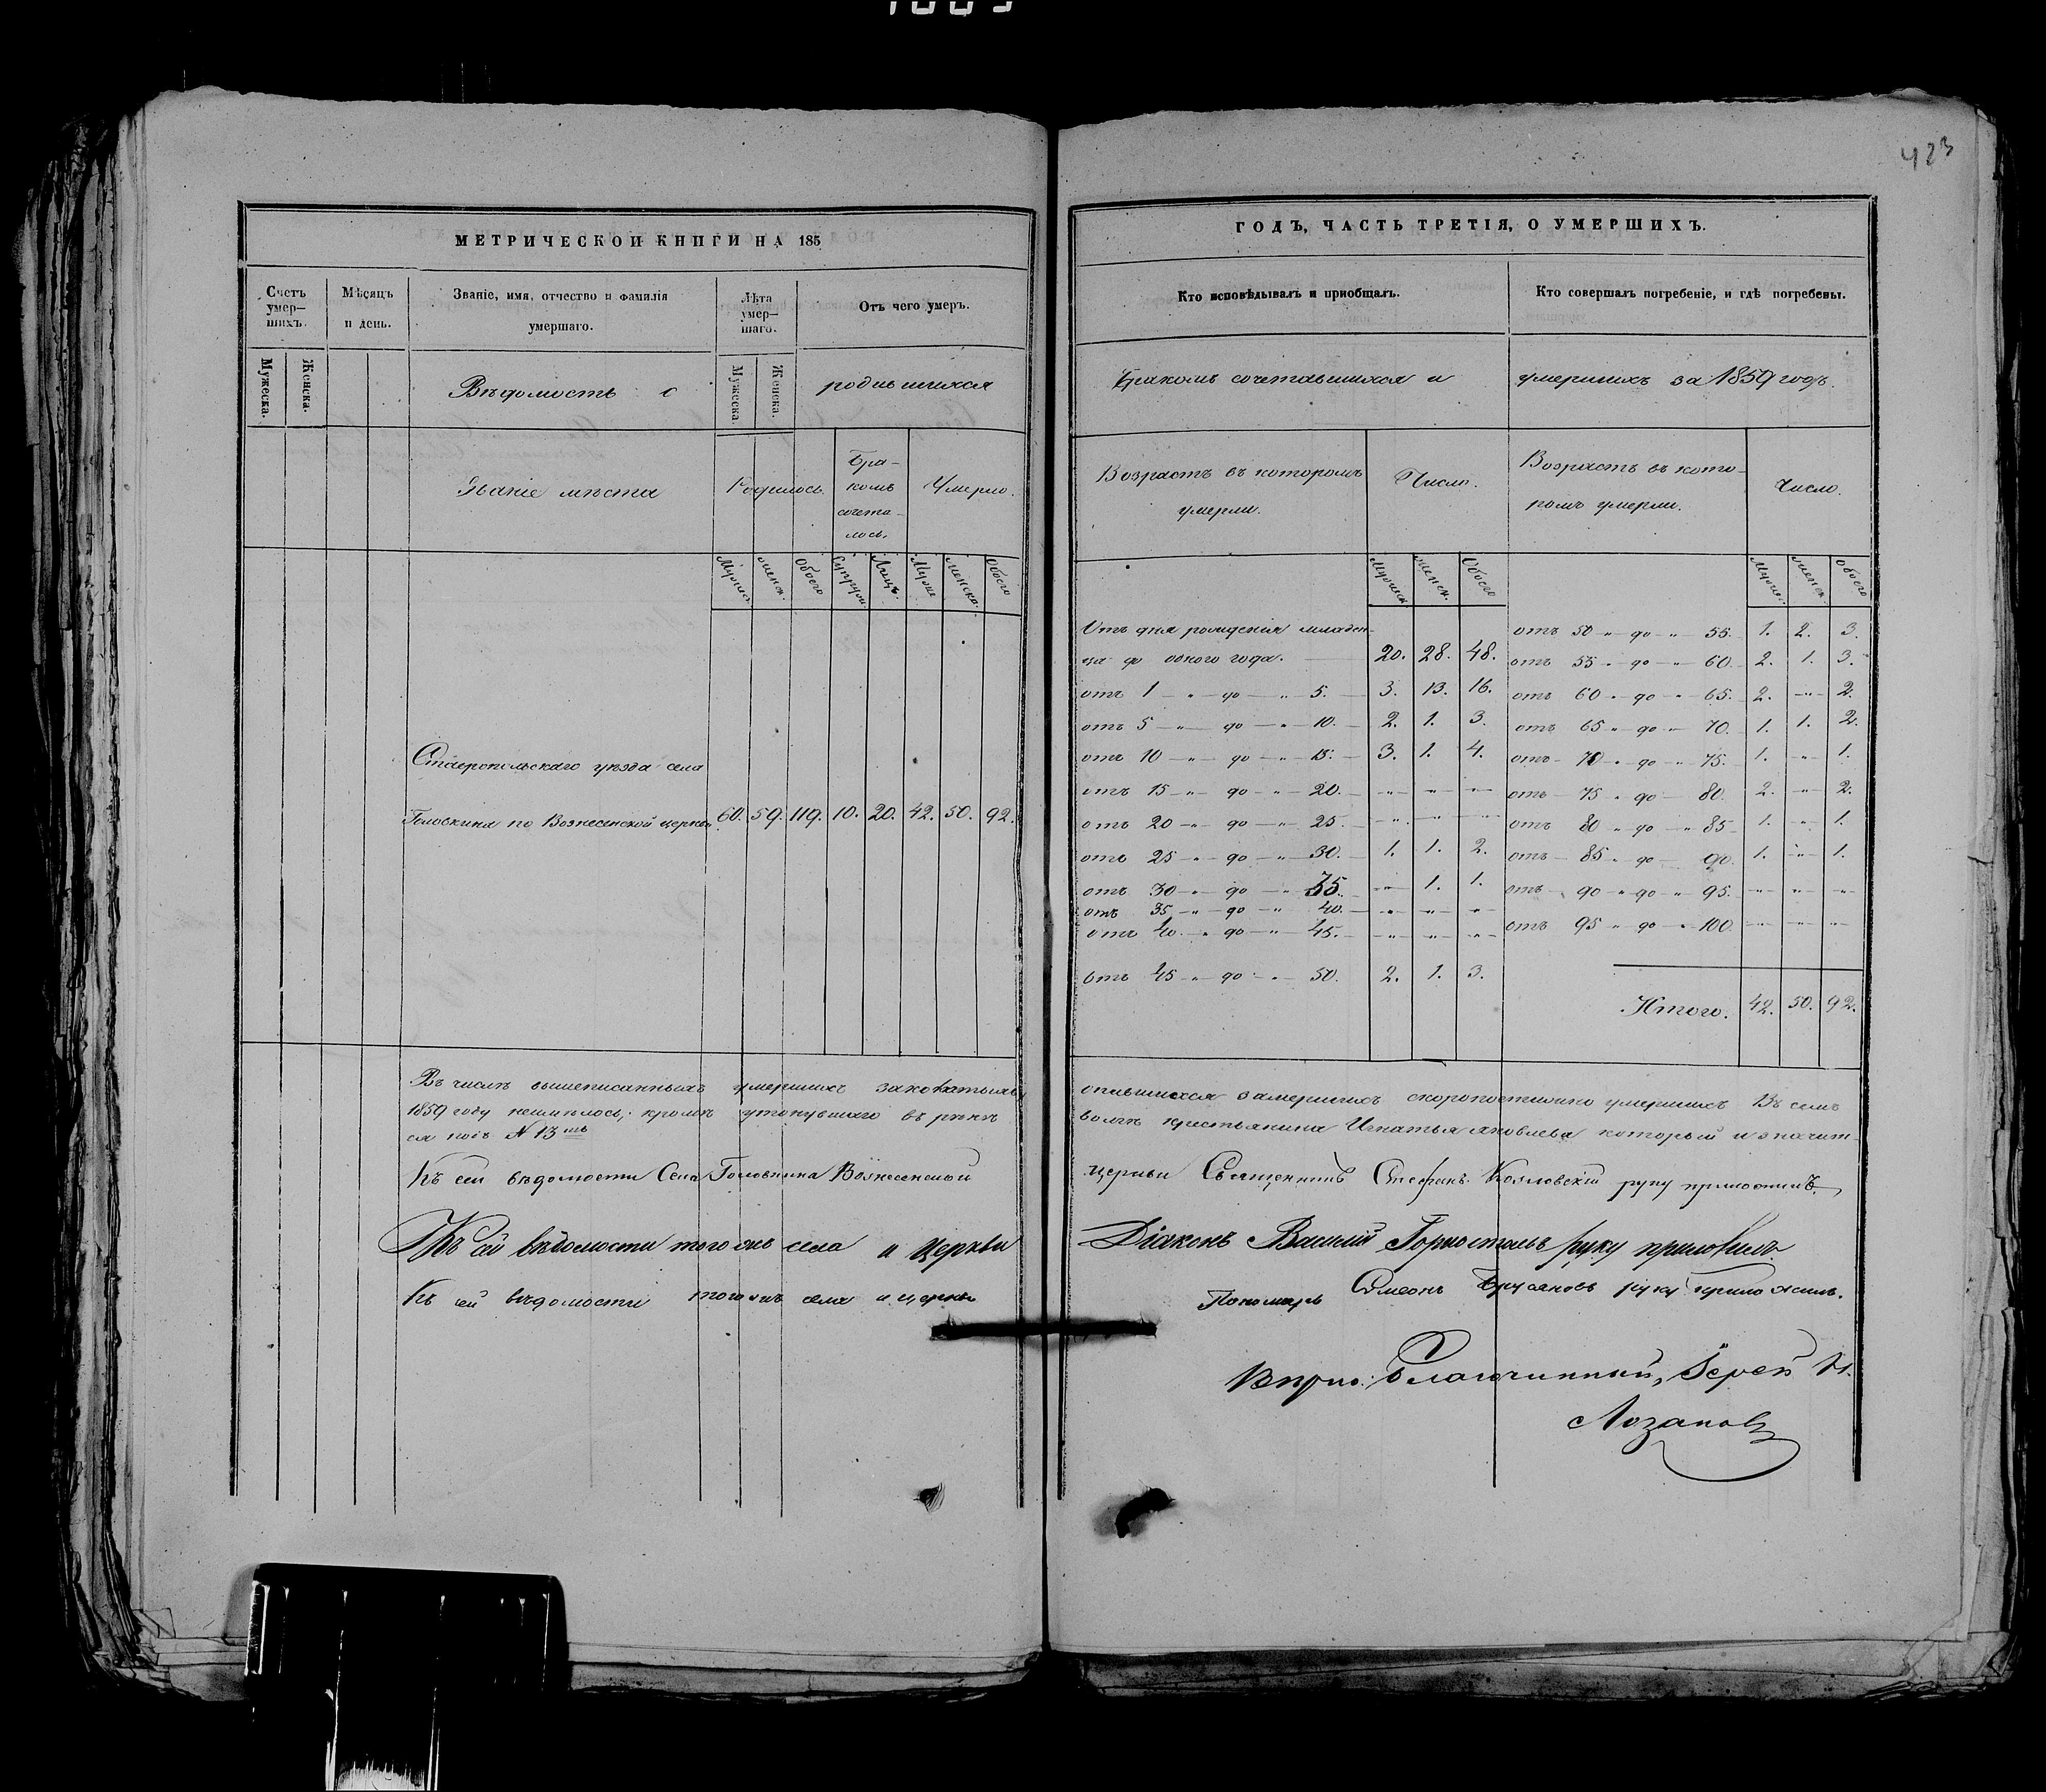 423
МЕТРИЧЕСКОЙ КНИГИ НА 185
Счетъ умер–шихъ.
Мѣсяцъ и день.
Званіе, имя, отчество и фамилія умершаго.
Лѣта умер–шаго.
Отъ чего умеръ.
Мужеска.
Женска.
Мужеска
Женска.
Вѣдомость о
родившихся
Званіе мѣста
Родилось.
Бра–
комъ
сочета–
лось.
Умерло.
Мужес.
женск.
Обоего
Супруж.
Лицъ.
Муже
женска.
Обоего
Ставропольскаго уѣзда села
Головкина по Вознесенской церкви 60. 59. 119. 10. 20. 42. 50. 92.
ГОДЪ, ЧАСТЬ ТРЕТІЯ, О УМЕРШИХЪ.
Кто исповѣдывалъ и приобщалъ.
Кто совершалъ погребеніе, и гдѣ погребены.
Бракомъ сочетавшихся и
умершихъ за 1859 годъ.
Возрастъ въ которомъ
умерли.
Число.
Возрастъ въ кото–
ромъ умерли.
Число.
Мужеск
женск.
Обоего
Мужес.
женск.
Обоего
Отъ дня рожденія младен–
ца до одного года. 20. 28. 48.
отъ 1 " до " 5. 3. 13. 16.
отъ 5 " до " 10. 2. 1. 3.
отъ 10 " до " 15. 3. 1. 4.
отъ 15 " до " 20. " " "
отъ 20 " до " 25. " " "
отъ 25 " до " 30. 1. 1. 2.
отъ 30 " до " 35. " 1. 1.
отъ 35 " до " 40. " " "
отъ 40 " до " 45. " " "
отъ 45 " до " 50. 2. 1. 3.
отъ 50 " до " 55. 1. 2. 3.
отъ 55 " до " 60. 2. 1. 3.
отъ 60 " до " 65. 2. " 2.
отъ 65 " до " 70. 1. 1. 2.
отъ 70 " до " 75. 1. " 1.
отъ 75 " до 80. 2. " 2.
отъ 80 " до " 85. 1. " 1.
отъ 85 " до 90. 1. " 1.
отъ 90 " до " 95. " " "
отъ 95 " до " 100. " " "
Итого. 42. 50. 92.
Въ числѣ вышеписанныхъ умершихъ опившихся замершихъ скоропостижно умершихъ Въ семъ
1859 году неимѣлось; кромѣ утонувшаго въ рѣкѣ Волгѣ крестьянина Игнатья Яковлева который и значит–
ся подъ N 13мъ
Къ сей вѣдомости Села Головкина Вознесенской церкви Священникъ Стефанъ Козловскій руку приложилъ.
Къ сей вѣдомости того же села и церкви Діаконъ Василій Горностаевъ руку приложилъ
Къ сей вѣдомости тогожъ села и церкви Пономарь Симеонъ Брусяновъ руку приложилъ.
Благочинный, Іерей
Лозановъ